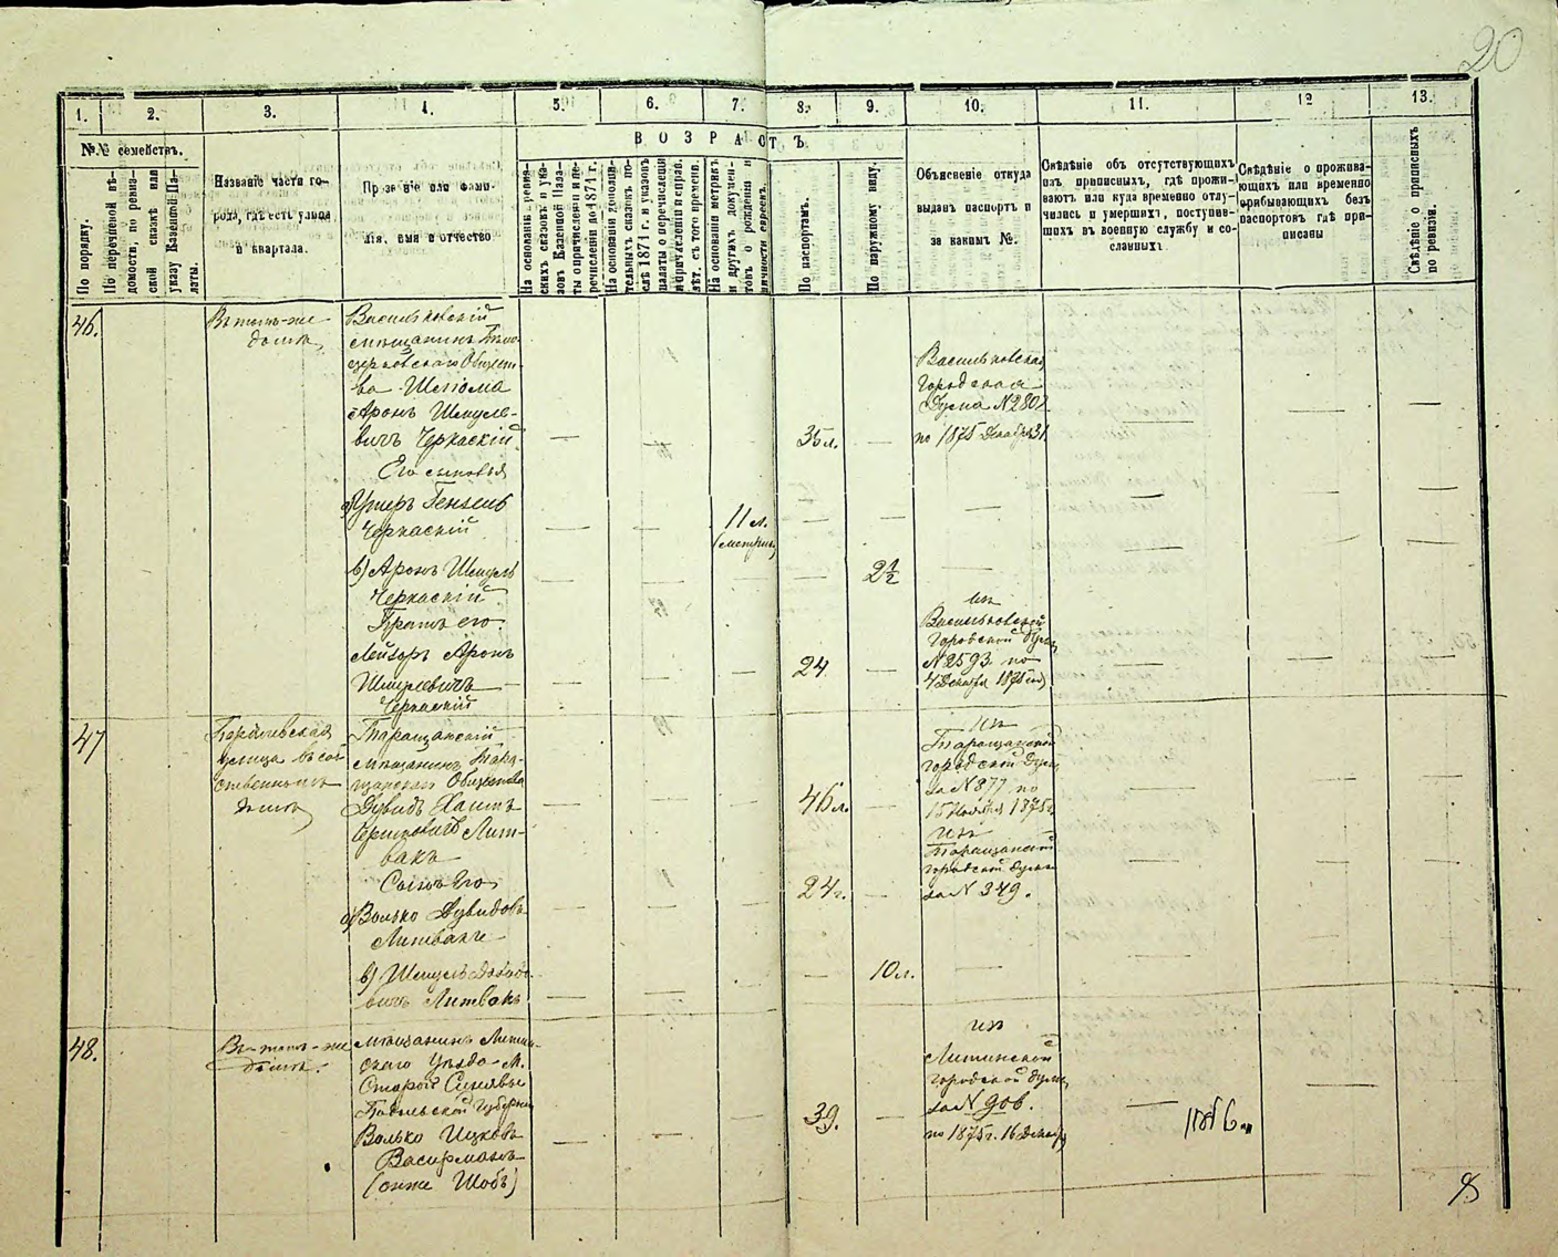 20
1. 2. 3. 4. 5. 6. 7. 8. 9. 10. 11. 12 13.
№№ семействъ.
ВОЗРАСТЪ
По порядку.
По перечневой вѣ-
домости, по ревиз-
ской сказкѣ или
указу Казенной Па-
латы.
Названіе части го-
рода, гдѣ есть улица
и квартала.
Прозваніе или фами-
лія, имя и отчество
На основаніи ревиз-
скихъ сказокъ и ука-
зовъ Казенной Пала-
ты о причисленіи и пе-
речисленіи до 1874 г.
На основаніи дополни-
тельныхъ сказокъ по-
слѣ 1874 г. и указовъ
палаты о перечисленіи
и причисленіи и справ.
лѣт. съ того времени.
На основаніи метрикъ
и другихъ докумен-
товъ о рожденіи и
личности евреевъ.
По паспортамъ.
По наружному виду.
Объясненіе откуда
выданъ паспортъ и
за какимъ №.
Свѣдѣніе объ отсутствующихъ
изъ приписныхъ, гдѣ прожи-
ваютъ или куда временно отлу-
чились и умершихъ, поступив-
шихъ въ военную службу и со-
сланныхъ
Свѣдѣніе о прожива-
ющихъ или временно
прибывающихъ безъ
паспортовъ гдѣ при-
писаны
Свѣдѣніе о приписныхъ
по ревизіи.
46.
Въ томъ-же
домѣ,
Васильковскій
мѣщанинъ Бѣло
церковскаго Общест-
ва Шлома
Аронъ Шмуле-
вичъ Черкаскій
35 л.
Васильковская
Городская
Дума №2802
по 1875 Декабря 31
Его сыновья
Черкаскій
11 л.
(метрика)
в) Аронъ Шмуль
Черкаскій
2 1/2
Братъ его
Лейзоръ Аронъ
Шмулевичъ
Черкаскій
24
изъ
Васильковской
Городской Думы
№2593 по
4 Декабря 1875 год
47
улица въ соб
ственномъ
домѣ
Таращанскій
мѣщанинъ Тара-
щанскаго Общества
Дувидъ Хаимъ
Лит-
вакъ
46 л.
изъ
Таращанской
городской Думы
за №877 по
15 Ноября 1875 г.
Сынъ Его
а) Волько Дувидовъ
Литвакъ
24 г.
изъ
Таращанской
городской Думы
за № 349.
в) Шмуль Дувидо-
вичъ Литвакъ
10 л.
48.
Въ-томъ-же
домѣ.
мѣщанинъ Литин-
скаго Уѣзда М.
Старой Синявы
Подольской Губерніи
Волько Ицковъ
Васирманъ
(онже Шобъ)
39.
изъ
Литинской
городской думы
за № 906.
по 1875 г. 16 Декабр